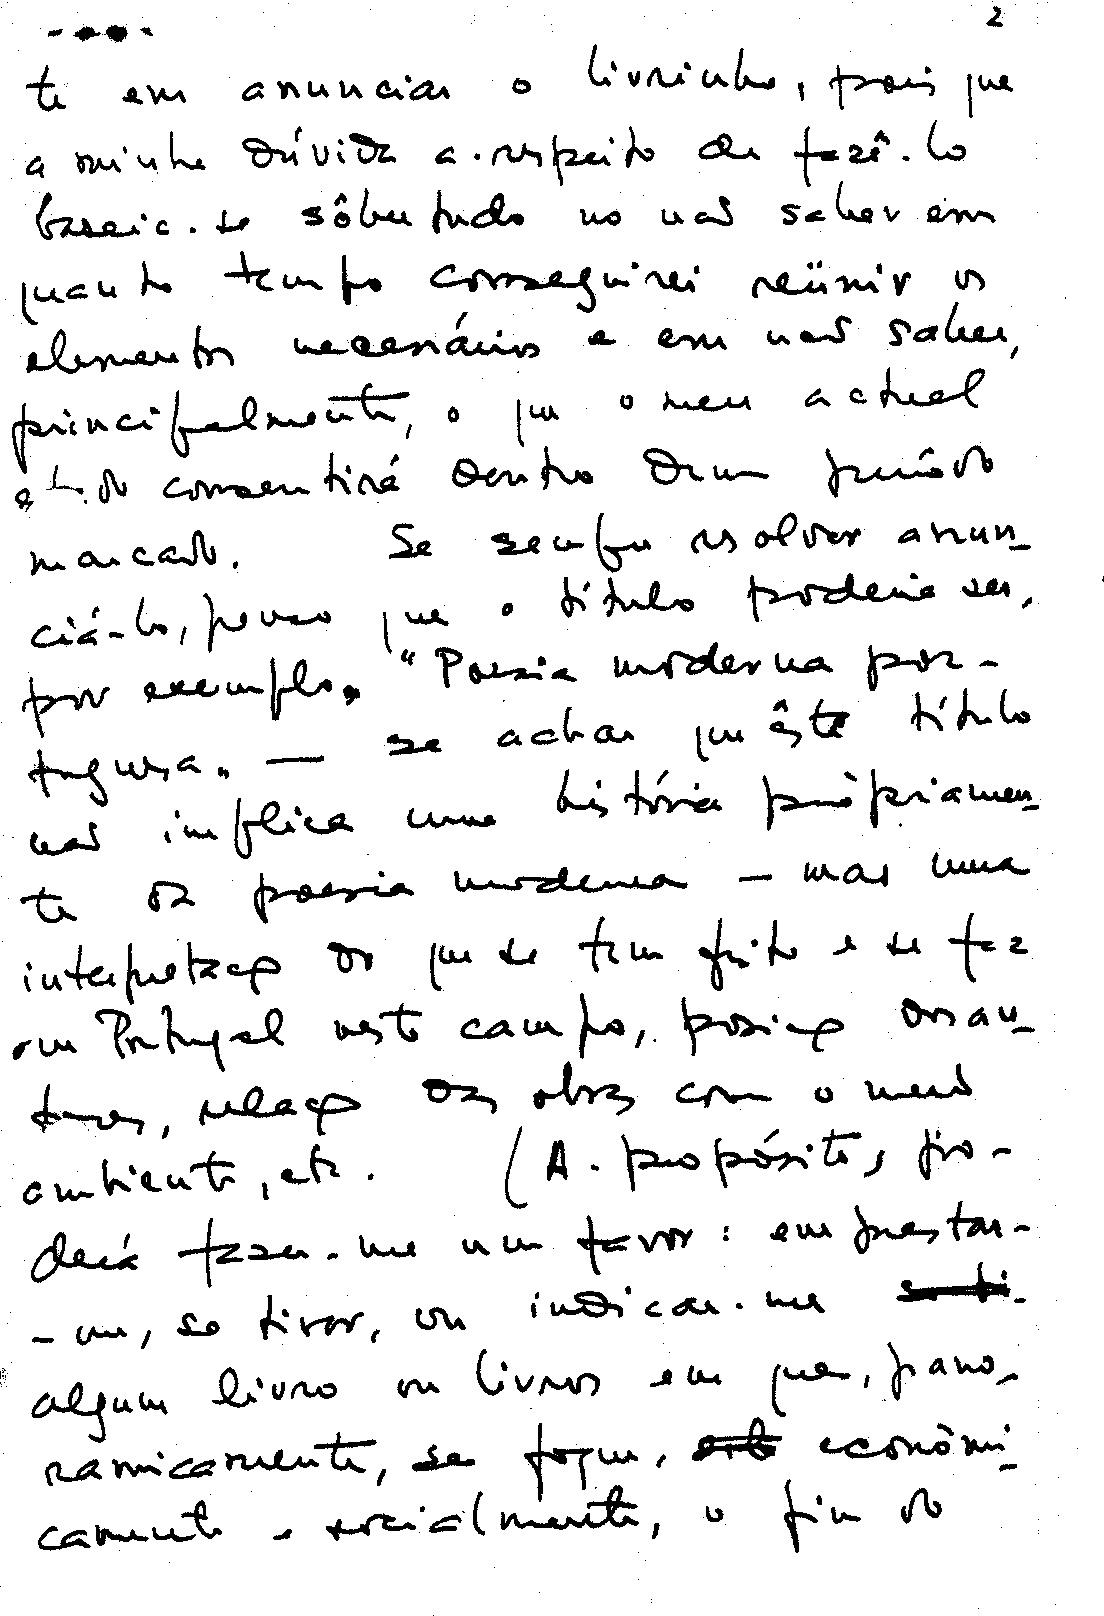 2
te em anunciar o livrinho, pois que
a minha dúvida a respeito de fazê-lo
baseia-se sôbretudo no não saber em
quanto tempo conseguirei reünir os
elementos necessários e em não saber,
principalmente, o que o meu actual
estado consentirá dentro dum período
marcado. Se sempre resolver anun-
ciá-lo, penso que o título poderia ser,
por exemplo, "Poesia moderna por-
tuguesa" — se achar que êste título
não implica uma história pròpriamen-
te da poesia moderna — mas uma
interpretação do que se tem feito e se faz
em Portugal neste campo, posição dos au-
tores, relação das obras com o meio
ambiente, etc. (A propósito, po-
derá fazer-me um favor: emprestar-
-me, se tiver, ou indicar-me
algum livro ou livros em que, pano-
ramicamente, se foque, económi-
camente e socialmente, o fim do